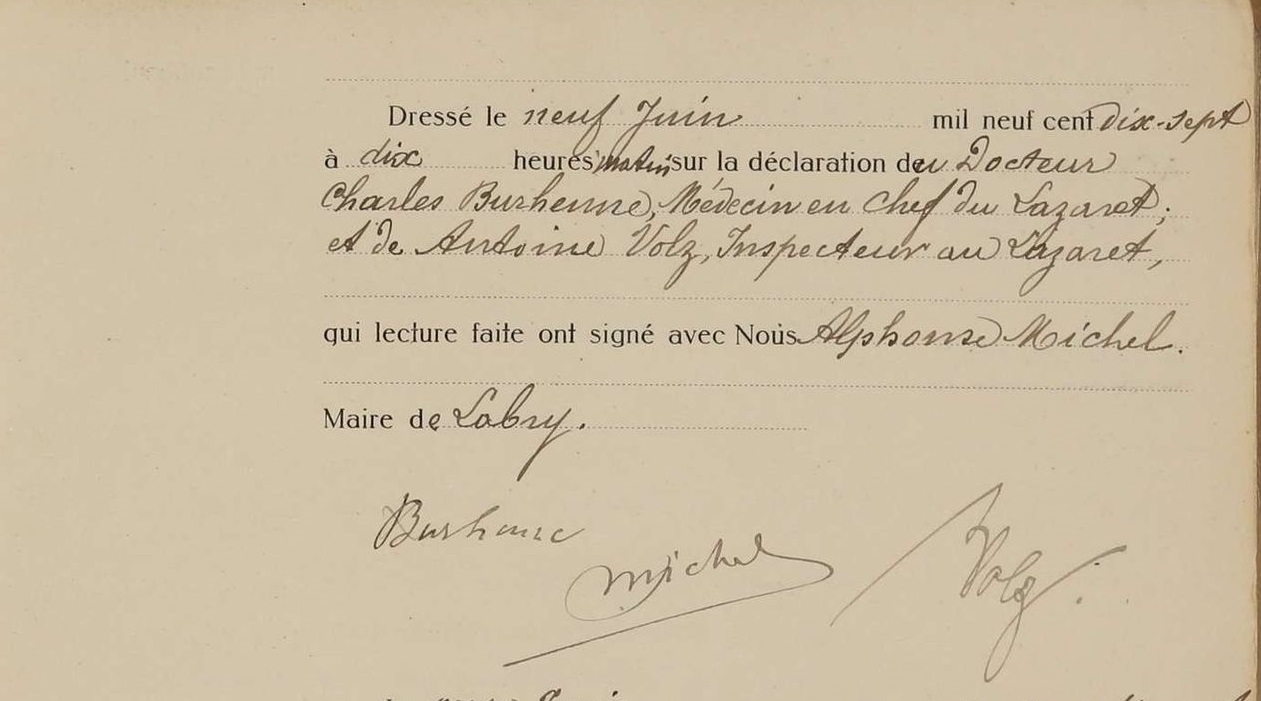 Dressé le neuf Juin mil neuf cent dix-sept
à dix heures matin sur la déclaration du Docteur
Charles Burhenne, Médecin en Chef du Lazaret;
et de Antoine Volz, Inspecteur au Lazaret,
qui lecture faite ont signé avec Nous Alphonse Michel.
Maire de Labry.
Burhenne
Michel
Volz.